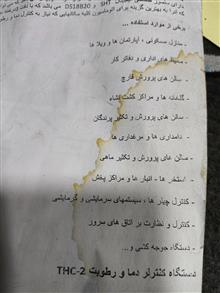 دارای سنسور
SHT
که آنرا به بهترین گزینه برای اتوماسیون کلیه سالنهایی که نیاز به کنترل دما و
DS18B20 می باشد
برخی از موارد استفاده ...
- منازل مسکونی ، آپارتمان ها و ویلا ها
- محیط های اداری و دفاتر کار
- سالن های پرورش قارچ
- گلخانه ها و مراکز کشت گیاه
- سالن های پرورش و تکثیر پرندگان
- دامداری ها و مرغداری ها
- سالن های پرورش و تکثیر ماهی
- استخر ها - انبار ها و مراکز پخش
- کنترل چیلر ها ، سیستمهای سرمایشی و گرمایشی
- کنترل و نظارت بر اتاق های سرور
- دستگاه جوجه کشی و...
دستگاه کنترلر دما و رطوبت THC-2